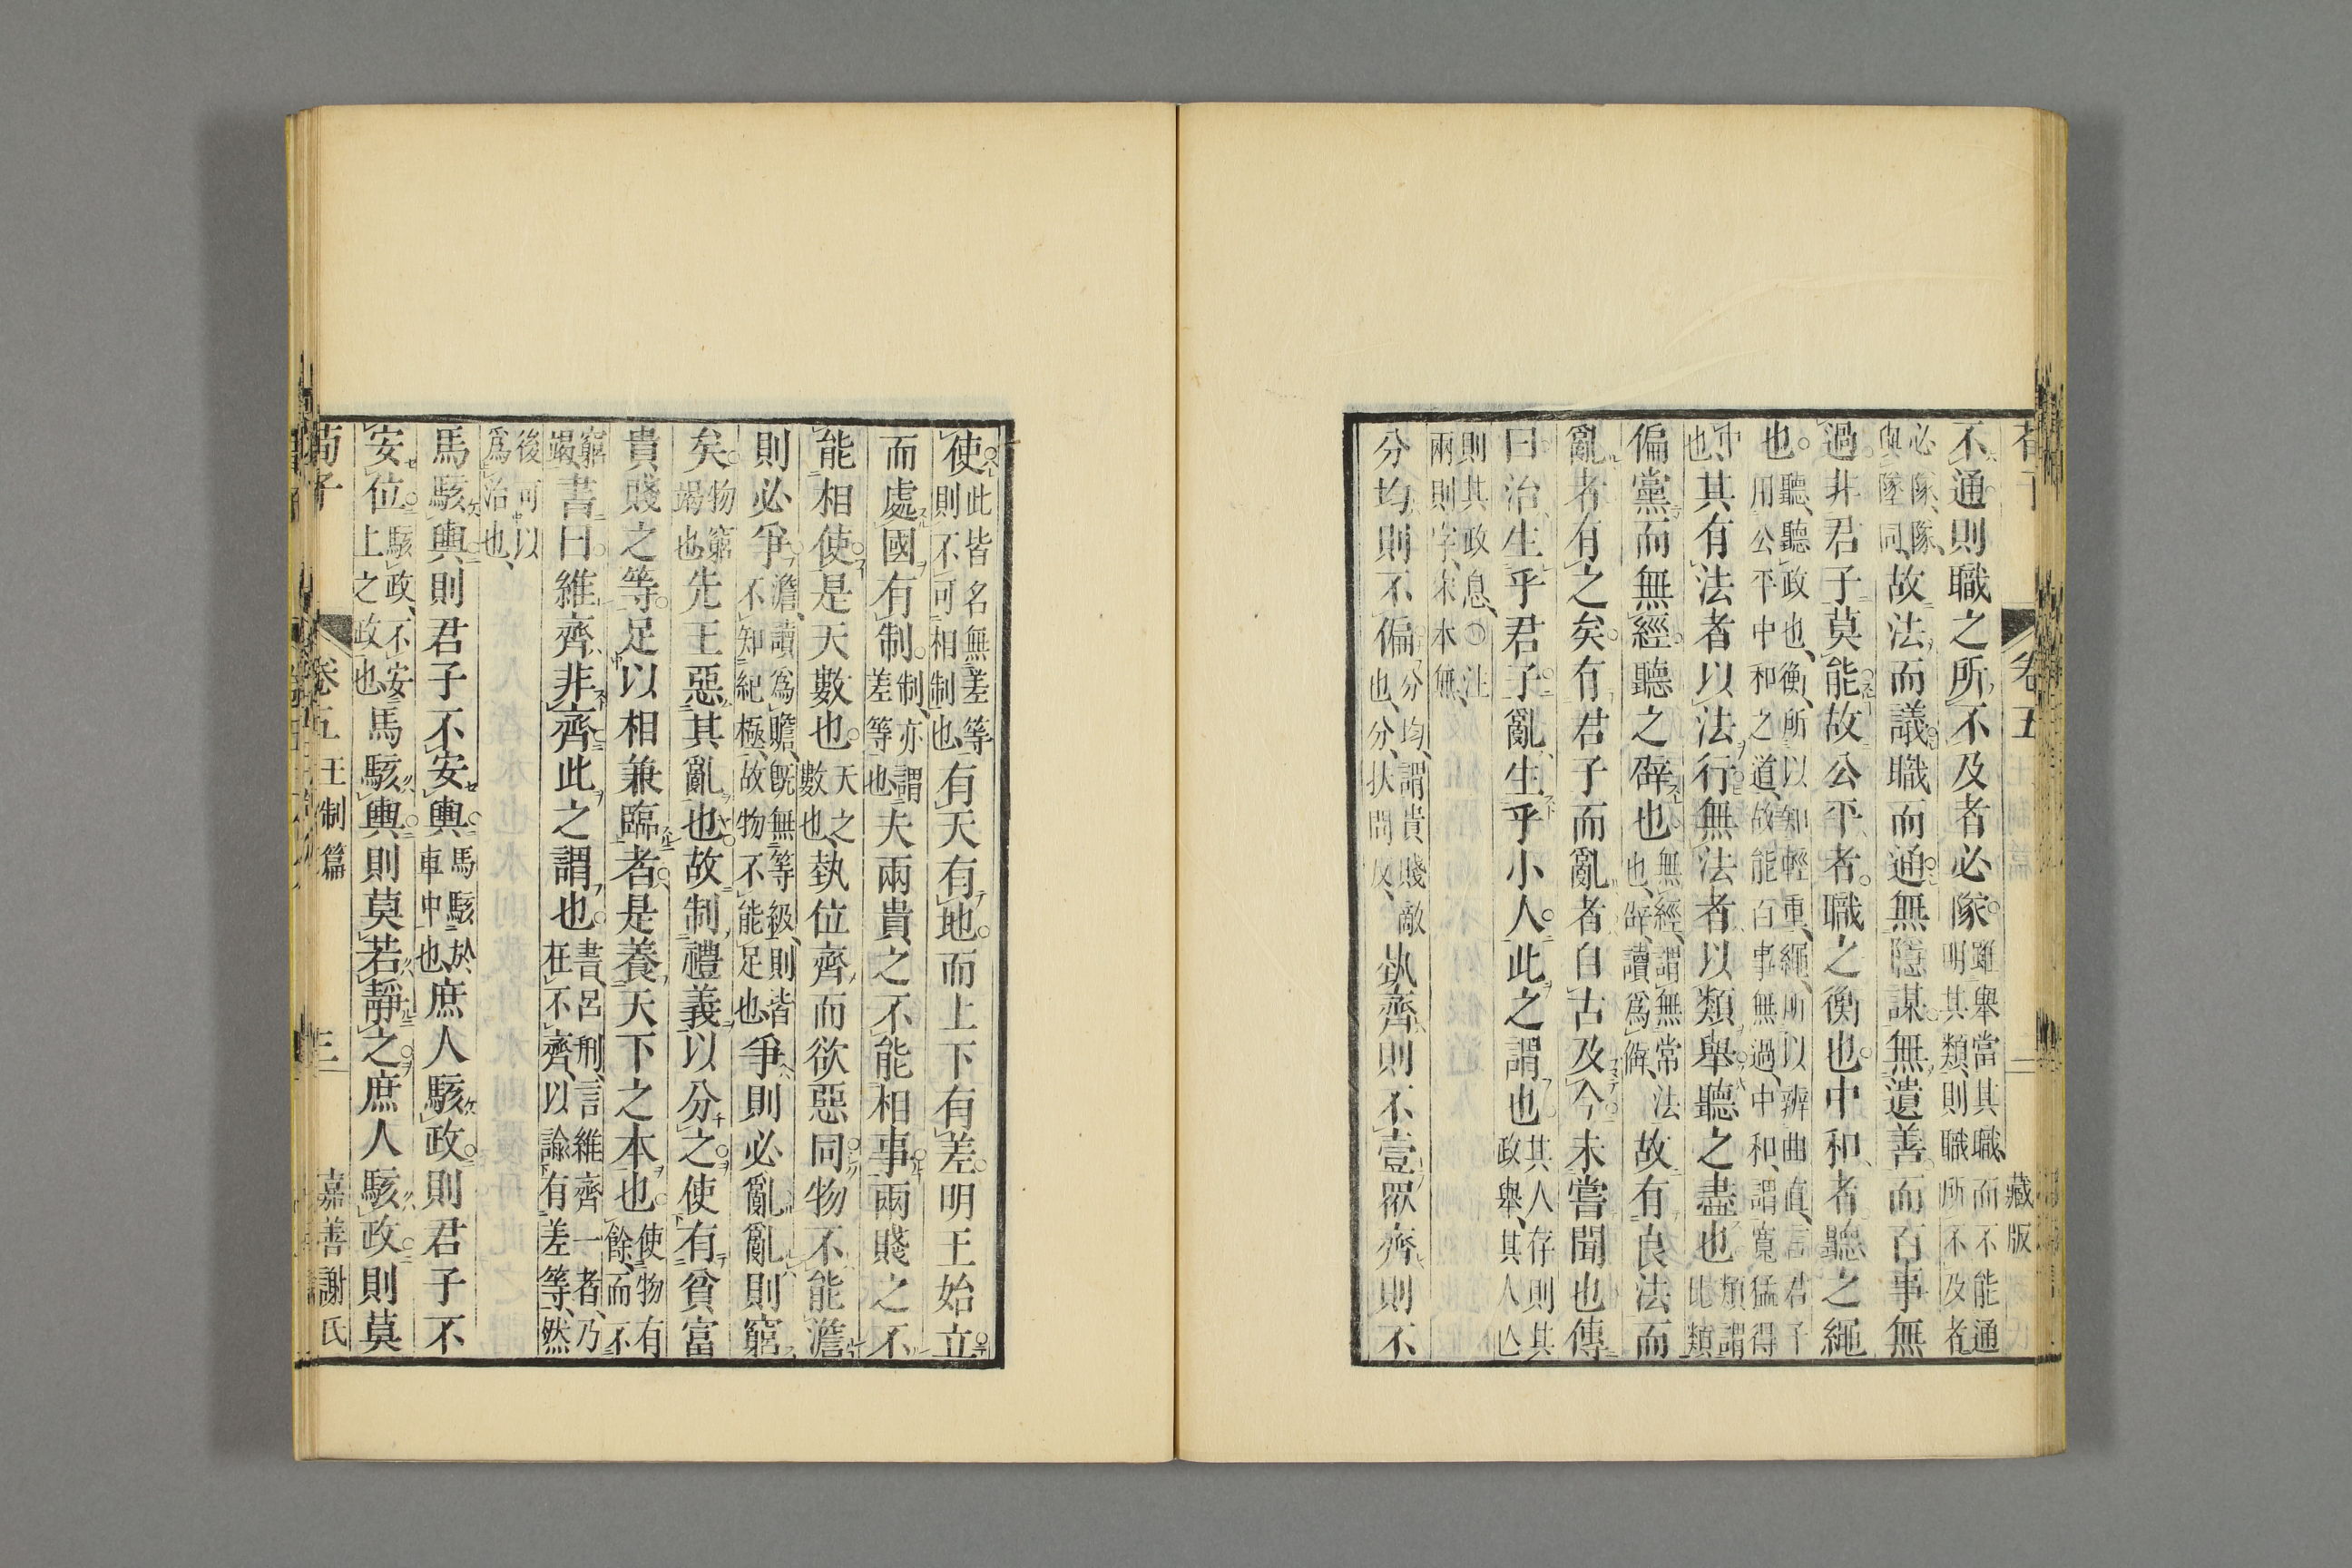 不通則職之所不及者必隊雖舉當其職而不能通明其類則職所不及者
必隊隊與墜同故法而議職而通無隱謀無遺善而百事無
過非君子莫能故公平者職之衡也中和者聽之繩
也聽聽政也衡所以知輕重繩所以辨曲直言君子用公平中和之道故能百事無過中和謂寬猛得
中也其有法者以法行無法者以類舉聽之盡也類謂比類
偏黨而無經聽之辟也無經謂無常法也辟讀爲僻故有良法而
亂者有之矣有君子而亂者自古及今未嘗聞也傳
曰治生乎君子亂生乎小人此之謂也其人存則其政舉其人亡
則其政息注兩則字宋本無
分均則不偏分均謂貴賤敵也分扶問反埶齊則不壹眾齊則不
使此皆名無差等則不可相制也有天有地而上下有差明王始立
而處國有制制亦謂差等也夫兩貴之不能相事兩賤之不
能相使是天數也天之數也埶位齊而欲惡同物不能澹
則必爭澹讀爲贍既無等級則皆不知紀極故物不能足也爭則必亂亂則窮
矣物窮竭也先王惡其亂也故制禮義以分之使有貧富
貴賤之等足以相兼臨者是養天下之本也使物有餘而不
窮竭書曰維齊非齊此之謂也書呂刑言維齊一者乃在不齊以諭有差等然
後可以爲治也
馬駭輿則君子不安輿馬駭於車中也庶人駭政則君子不
安位駭政不安上之政也馬駭輿則莫若靜之庶人駭政則莫
荀子 卷五 王制篇 三 嘉善謝氏
卷五 二 藏版